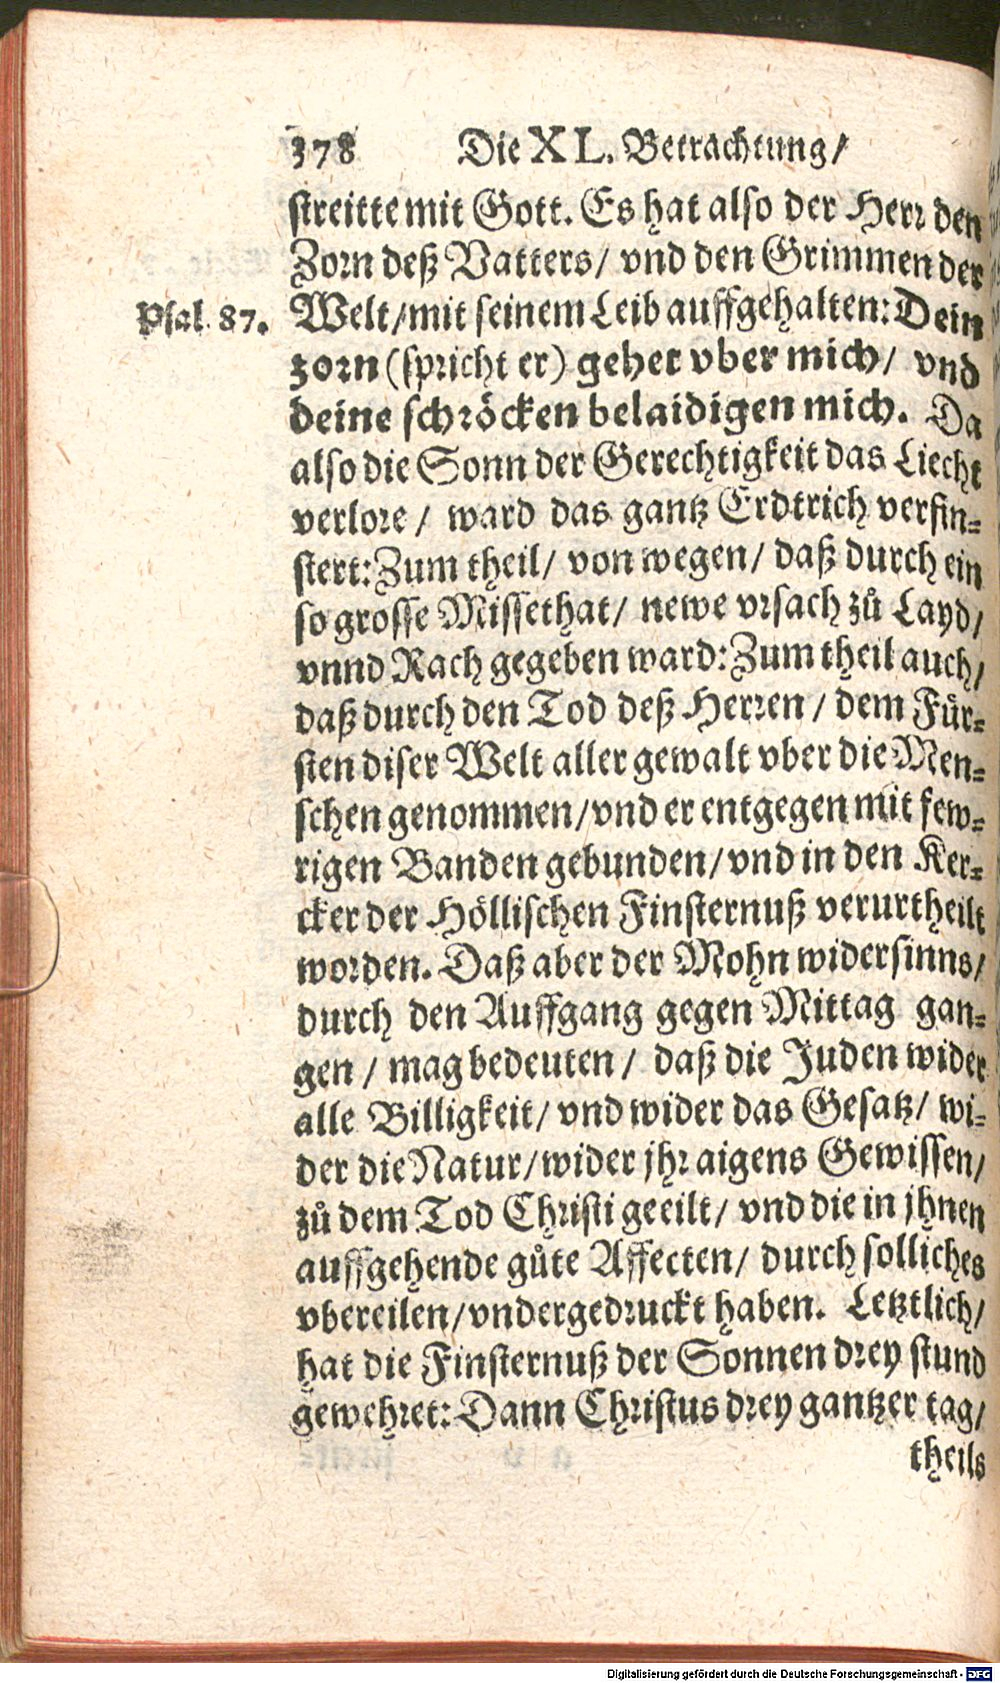 378 Die XL. Betrachtung/
streitte mit Gott. Es hat also der Herr den
Zorn deß Vatters/ vnd den Grimmen der
Psal. 87. Welt/mit seinem Leib auffgehalten: Dein
zorn (spricht er) gehet vber mich/ vnd
deine schröcken belaidigen mich. Da
also die Sonn der Gerechtigkeit das Liecht
verlore / ward das gantz Erdtrich verfin-
stert: Zum theil/ von wegen/ daß durch ein
so grosse Missethat/ newe vrsach zů Layd/
vnnd Rach gegeben ward: Zum theil auch/
daß durch den Tod deß Herren / dem Für-
sten diser Welt aller gewalt vber die Men-
schen genommen/vnd er entgegen mit few-
rigen Banden gebunden/vnd in den Ker-
cker der Höllischen Finsternuß verurtheilt
worden. Daß aber der Mohn widersinns/
durch den Auffgang gegen Mittag gan-
gen / mag bedeuten / daß die Juden wider
alle Billigkeit/ vnd wider das Gesatz/ wi-
der die Natur/wider jhr aigens Gewissen/
zů dem Tod Christi geeilt/ vnd die in jhnen
auffgehende gůte Affecten/ durch solliches
vbereilen/vndergedruckt haben. Letztlich/
hat die Finsternuß der Sonnen drey stund
gewehret: Dann Christus drey gantzer tag/
theils
Digitalisierung gefördert durch die Deutsche Forschungsgemeinschaft - DFG